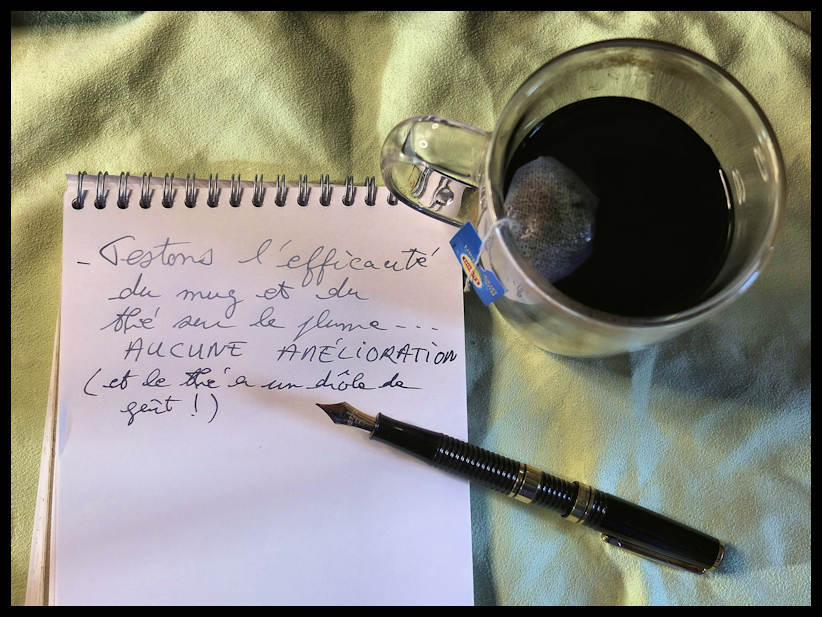 - Testons l'efficacité
du mug et du
thé sur la plume - - -
AUCUNE AMÉLIORATION
(et le thé a un drôle de
goût !)